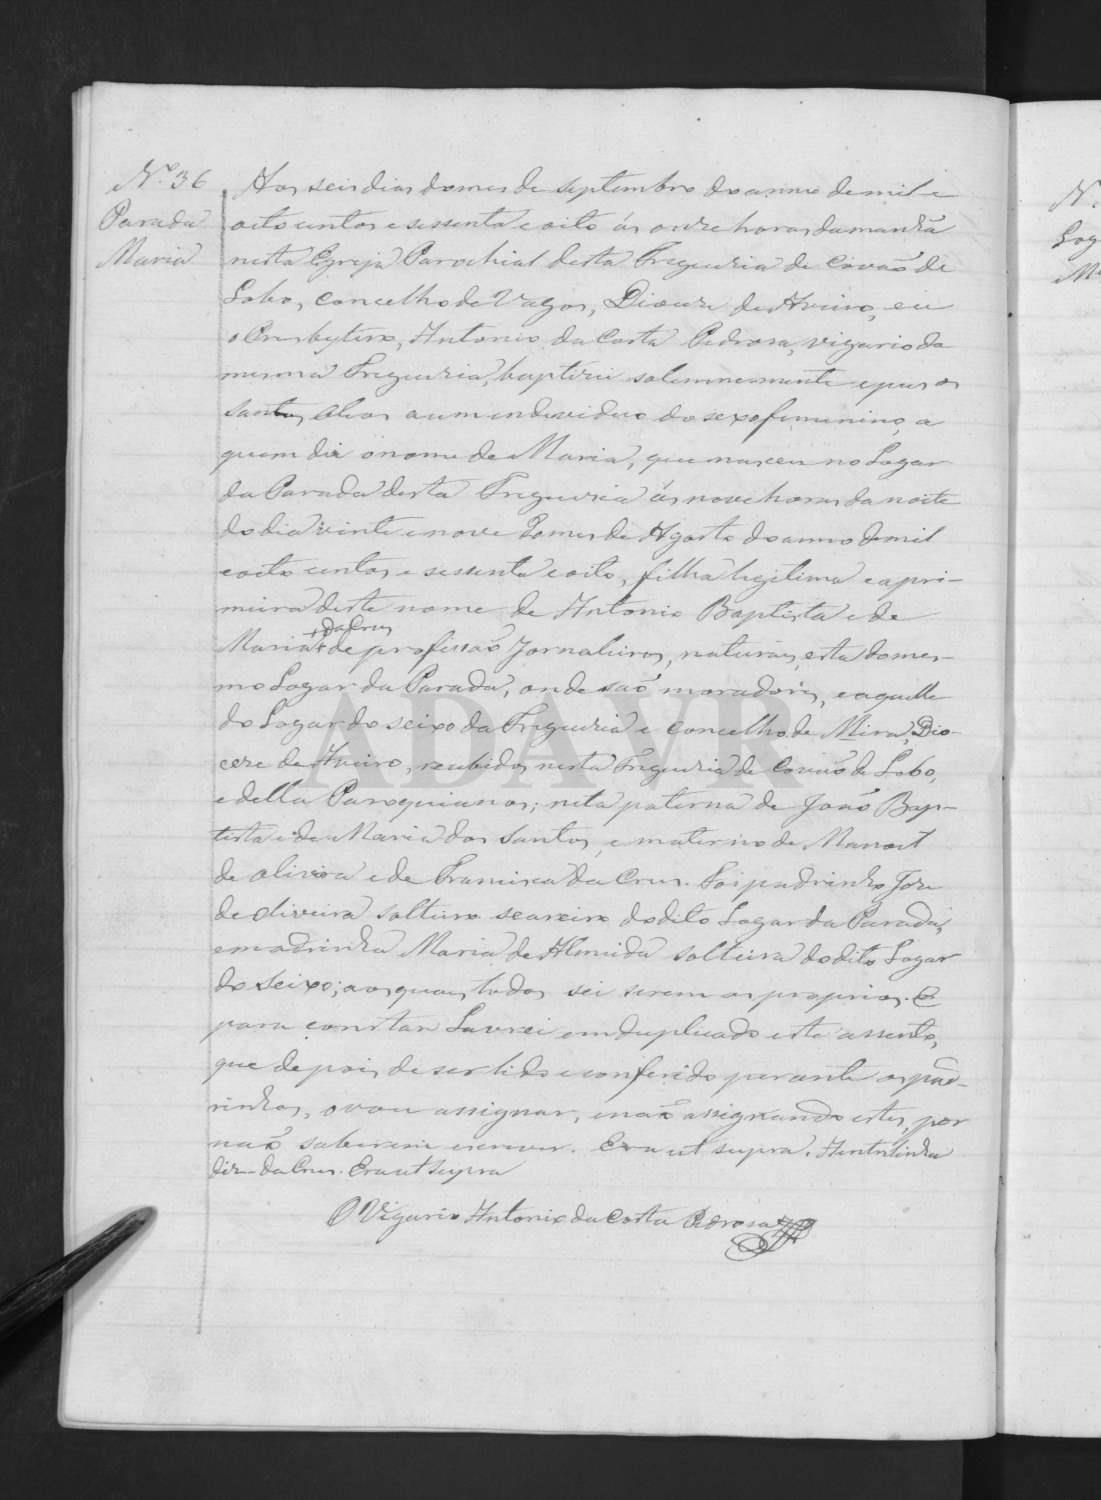 Nº 36
Parada
Maria
Aos seis dias do mes de septembro do anno de mil e
oito centos e sessenta e oito ás onze horas da manhã
nesta Egreja Parochial desta Freguezia de Covão de
Lobo, concelho de Vagos, Diocese de Aveiro, eu
o Presbytero, Antonio da Costa Pedrosa, vigario da
mesma Freguezia, baptizei solemnemente e pus os
santos oleos a um individuo do sexo femenino, a
quem dei o nome de Maria, que nasceu no Logar
da Parada desta Freguezia ás nove horas da noite
do dia vinte e nove do mes de Agosto do anno de mil
e oito centos e sessenta e oito, filha legitima e a pri-
meira deste nome de Antonio Baptista e de
Maria + da Cruz de profissão Jornaleiros, naturaes, esta do mes-
mo Logar da Parada, onde são moradores, e aquelle
do Logar do seixo da Freguezia e concelho de Mira, Dio-
cese de Aveiro, recebidos nesta Freguezia de Covão de Lobo,
e della Paroquianos; neta paterna de João Bap-
tista e de Maria dos Santos, e materno de Manoel
de oliveira e de Francisca da Cruz. Foi padrinho José
de oliveira solteiro seareiro do dito Logar da Parada,
e madrinha Maria de Almeida solteira do dito Logar
do Seixo; aos quaes todos sei serem os proprios. E
para constar Lavrei em duplicado este assento,
que depois de ser lido e conferido perante os pad-
rinhos, o vou assignar, e não assignando estes, por
não saberem escrever. Era ut supra. A entrelinha
diz - da Cruz. Era ut supra
O Vigario Antonio da Costa Pedrosa
N.
Log
M
ADAVR